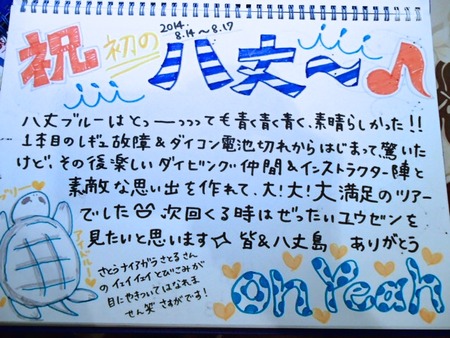 祝 初の 八丈〜♪
2014.
8.14〜8.17
八丈ブルーはとっーっっっても青く青く青く、素晴らしかった!!
1本目のレギュ故障&ダイコン電池切れからはじまって、驚いた
けど、その後楽しいダイビング仲間&インストラクター陣と
素敵な思い出を作れて、大!大!大満足のツアー
でした 次回くる時はぜったいユウゼンを
見たいと思います 皆&八丈島 ありがとう
さとうナイアガラさとるさん
のイェイイェイとびこみが
目にやきついてはなれま
せん笑 さすがです!
Oh Yeah